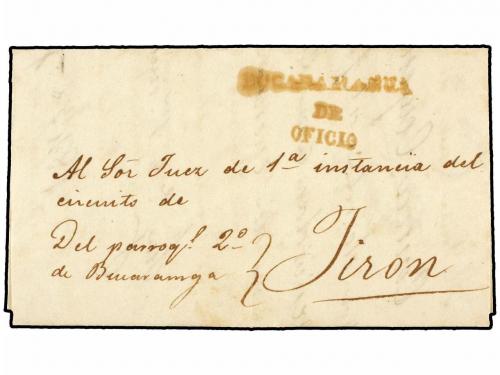 BUCARAMANGA
DE
OFICIO
Al Sór Juez de 1ª instancia del
circuito de
Jiron
Del parroql. 2º
de Bucaramga